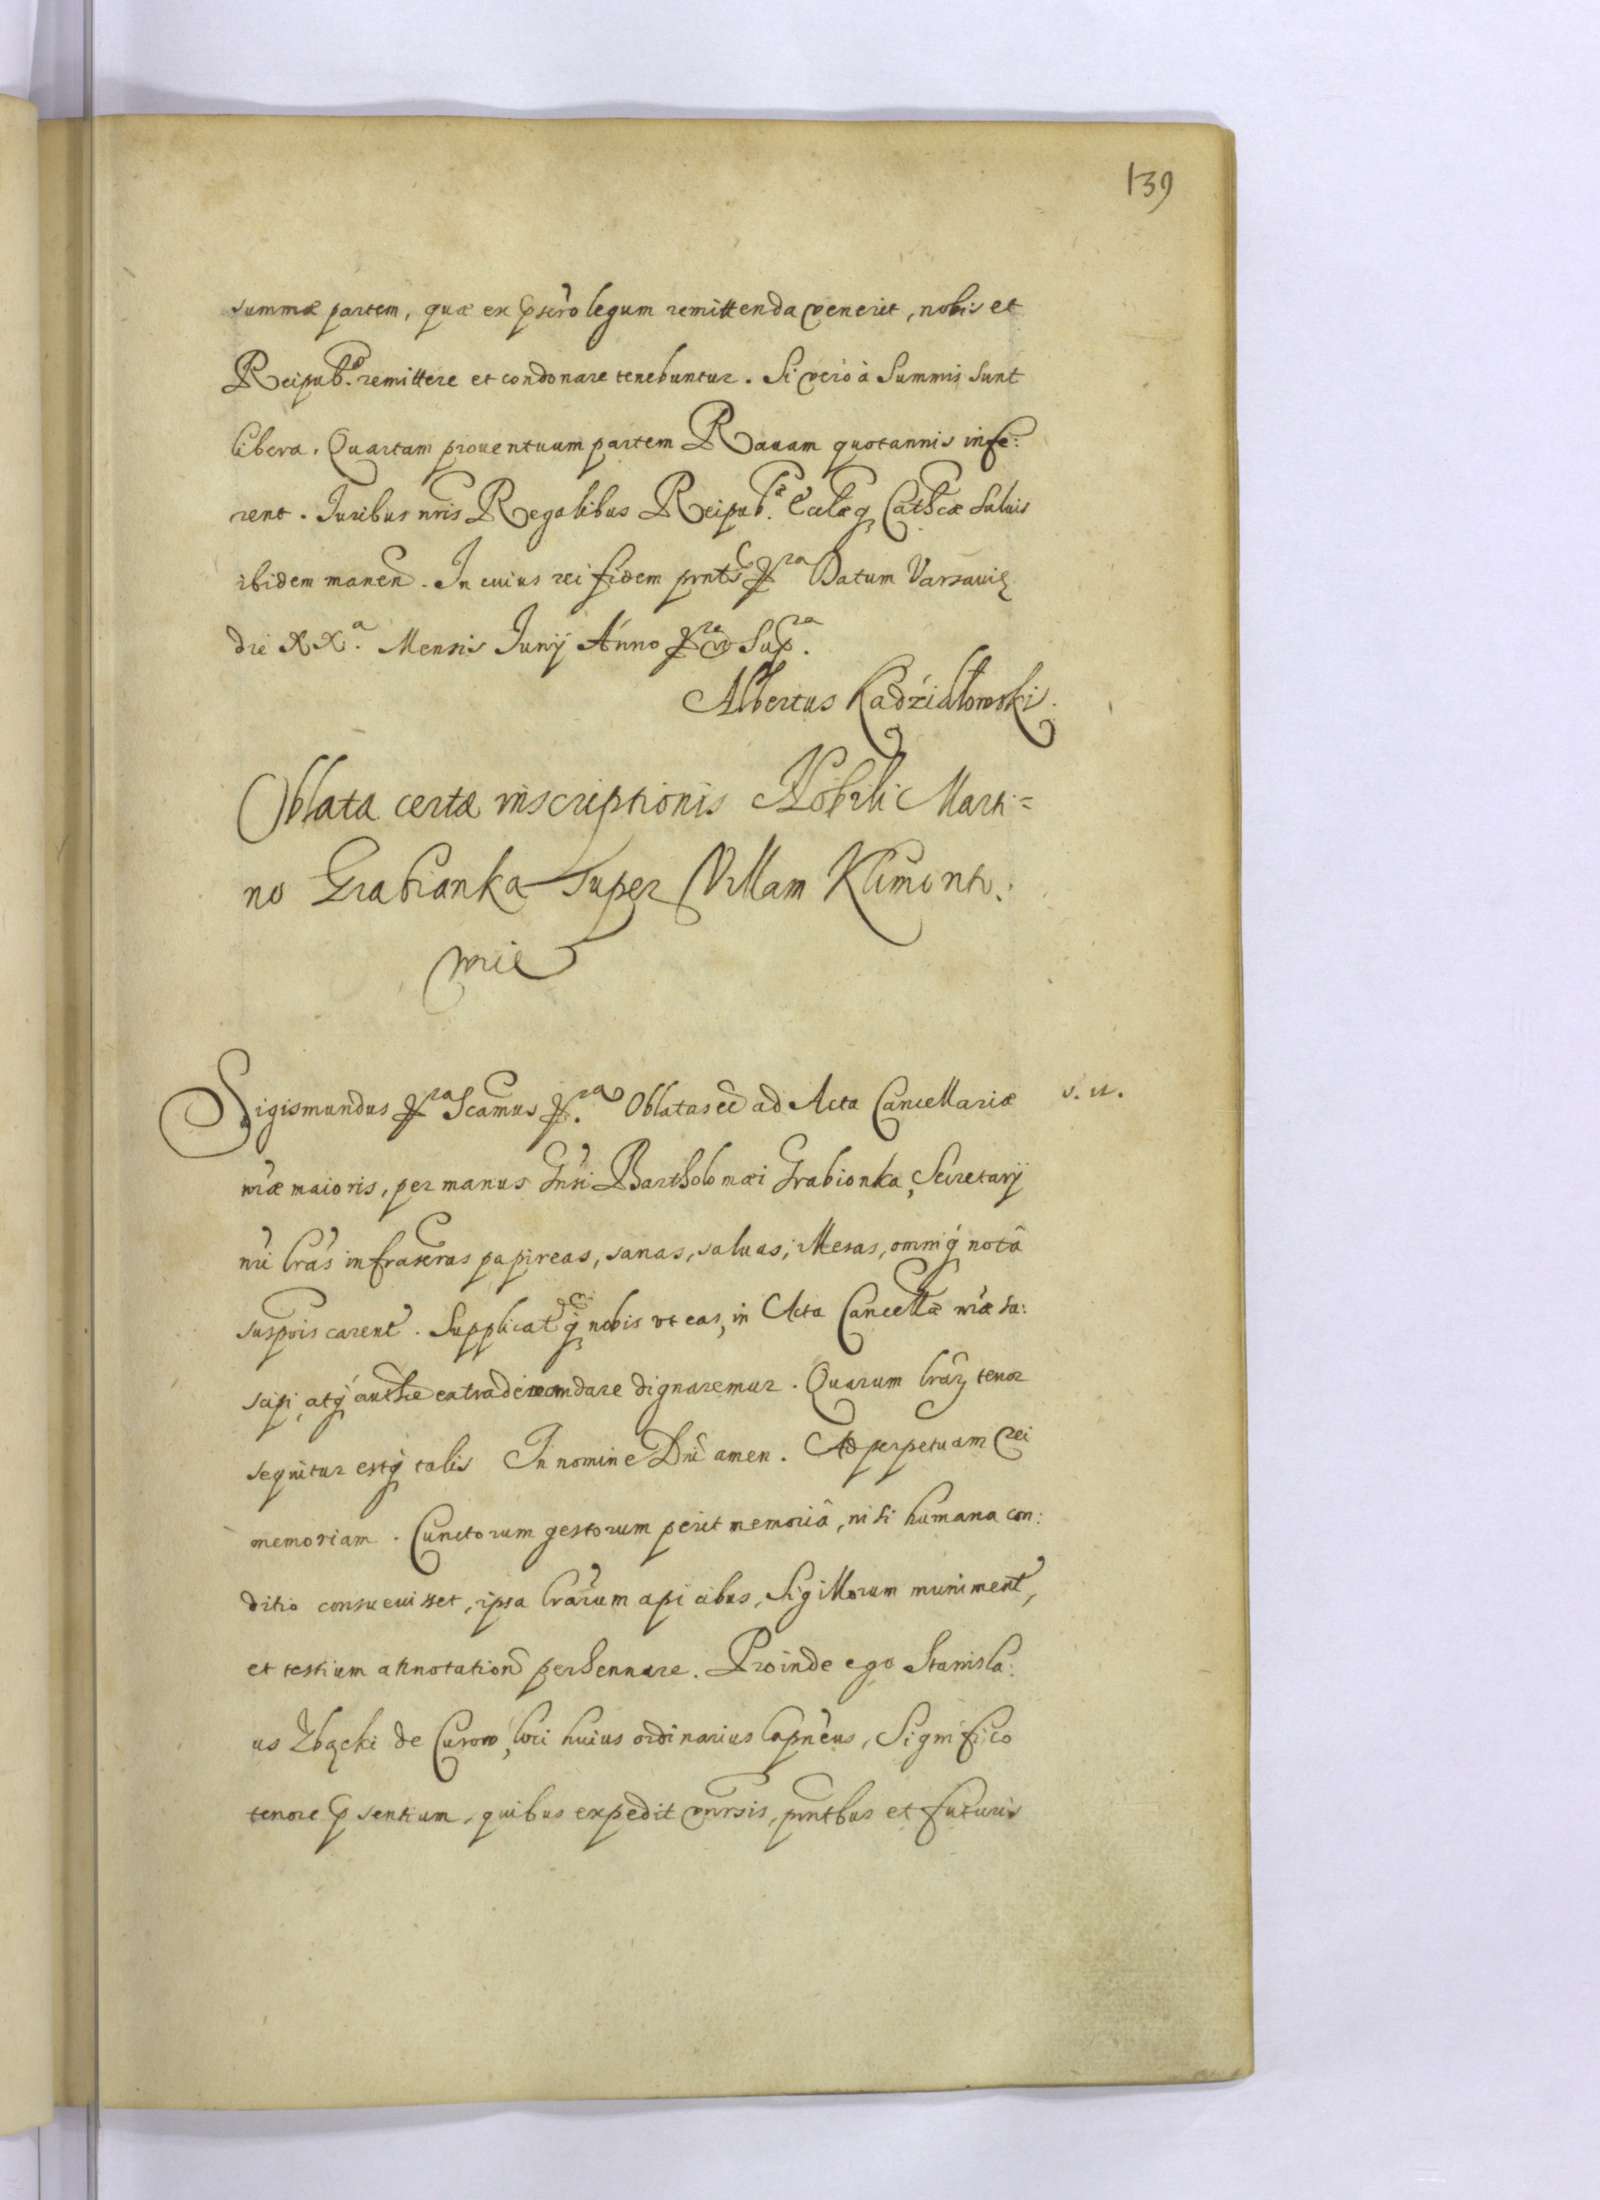 139
summæ partem, quæ ex pscro legum remittenda venerit, nobis et
Reipub. remittere et condonare tenebuntur. Si vero à Summis sunt
libera. Quartam prouentuum partem Rauam quotannis infe:
rent. Juribus nris Regalibus Reipub. Ecclæq Cathcæ saluis
ibidem manen. In cuius rei fidem prnts &ra Datum Varsauię
die XX.a Mensis Junij Anno &ra vt Supra.
Albertus Kadzidłowski.
Oblata certæ inscriptionis Nobili Marti=
no Grabianka super Villam Klimonto:
wie
Sigismundus &ra Scamus &.ra Oblatas ee ad Acta Cancellariæ
s. n.
nræ maioris, per manus Gnsi Bartholomæi Grabionka, Secretarij
nri lras infrascras papireas, sanas, saluas, illesas, omniq notâ
suspois carent. Supplicatq nobis vt eas, in Acta Cancellæ nræ su:
scipi, atq authce extradi mandare dignaremur. Quarum lrarz tenor
sequitur estq talis In nomine Dni amen. Ad perpetuam rei
memoriam. Cunctorum gestorum perit memoriâ, nisi humana con:
ditio consueuisset, ipsa lrarum apicibus, Sigillorum muniment,
et testium annotation perhennare. Proinde ego Stanisla:
us Zbącki de Curow, loci huius ordinarius Capneus, Significo
tenore psentium, quibus expedit vnrsis, pntbus et futuris